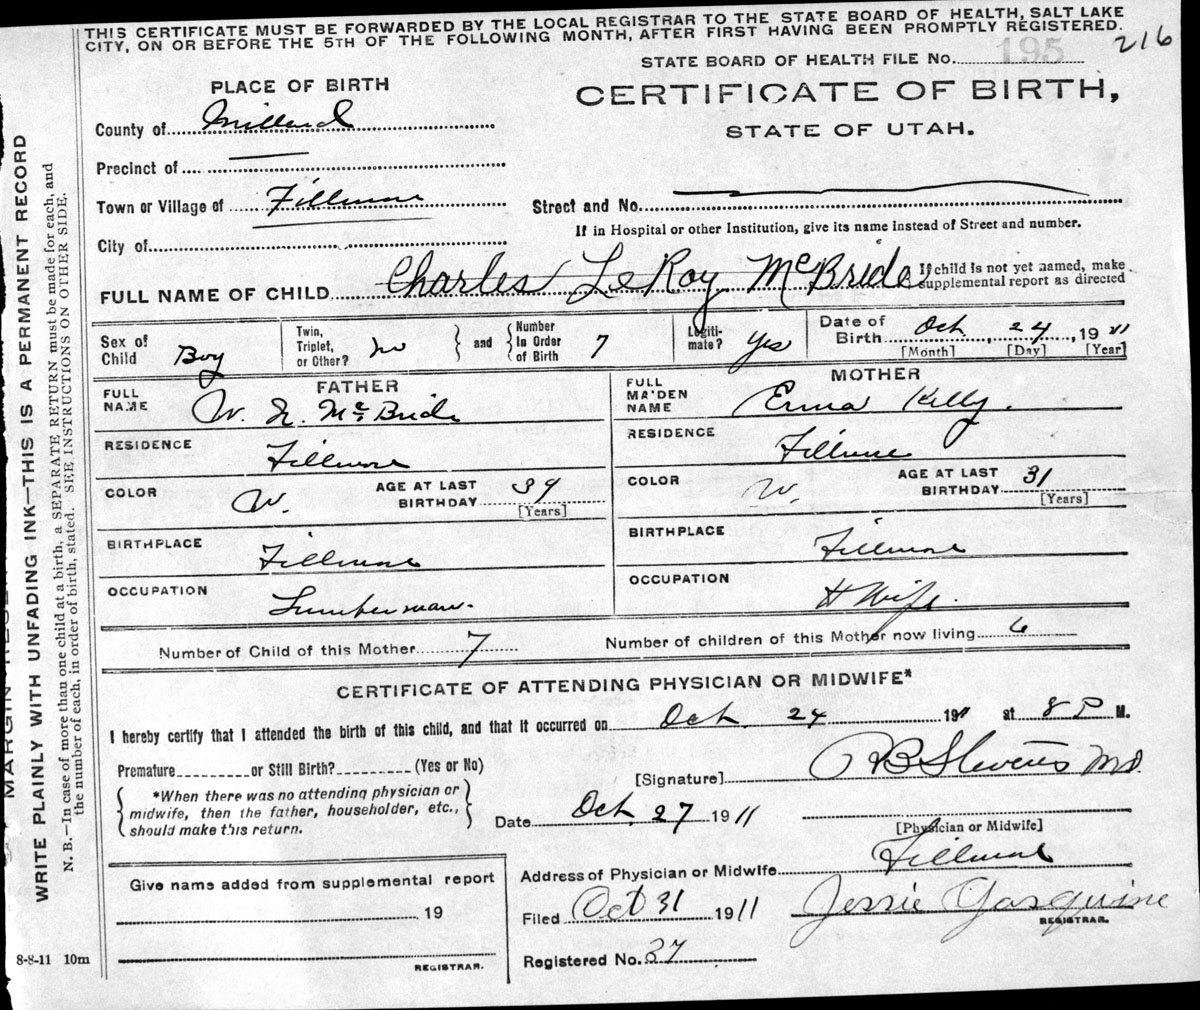 THIS CERTIFICATE MUST BE FORWARDED BY THE LOCAL REGISTRAR TO THE STATE BOARD OF HEALTH, SALT LAKE
CITY, ON OR BEFORE THE 5TH OF THE FOLLOWING MONTH, AFTER FIRST HAVING BEEN PROMPTLY REGISTERED.
195 216
STATE BOARD OF HEALTH FILE No.
PLACE OF BIRTH
CERTIFICATE OF BIRTH,
STATE OF UTAH.
County of Millard
Precinct of
Town or Village of Fillmore
Street and No.
If in Hospital or other Institution, give its name instead of Street and number.
City of
FULL NAME OF CHILD Charles LeRoy McBride
If child is not yet named, make
supplemental report as directed
Sex of Child Boy
Twin, Triplet, or Other? no
and Number In Order of Birth 7
Legiti-mate? Yes
Date of Birth Oct, 24, 1911
[Month] [Day] [Year]
FATHER
FULL NAME W. McBride
RESIDENCE Fillmore
COLOR W. AGE AT LAST BIRTHDAY 39
[Years]
BIRTHPLACE Fillmore
OCCUPATION Lumberman.
MOTHER
FULL MAIDEN NAME Erma Kelly.
RESIDENCE Fillmore
COLOR W. AGE AT LAST BIRTHDAY 31
[Years]
BIRTHPLACE Fillmore
OCCUPATION H Wife.
Number of Child of this Mother 7
Number of children of this Mother now living 6
CERTIFICATE OF ATTENDING PHYSICIAN OR MIDWIFE*
I hereby certify that I attended the birth of this child, and that it occurred on Oct. 24 1911 at 8 P M.
Premature or Still Birth? (Yes or No)
[Signature] Stevens MD.
*When there was no attending physician or
midwife, then the father, householder, etc.,
should make this return.
Date Oct. 27 1911
[Physician or Midwife]
Address of Physician or Midwife Fillmore
Give name added from supplemental report
19
REGISTRAR.
Filed Oct 31 1911 Jessie
REGISTRAR.
Registered No. 37
8-8-11 10m
WRITE PLAINLY WITH UNFADING INK—THIS IS A PERMANENT RECORD
N. B.—In case of more than one child at a birth, a SEPARATE RETURN must be made for each, and
the number of each, in order of birth, stated. SEE INSTRUCTIONS ON OTHER SIDE.